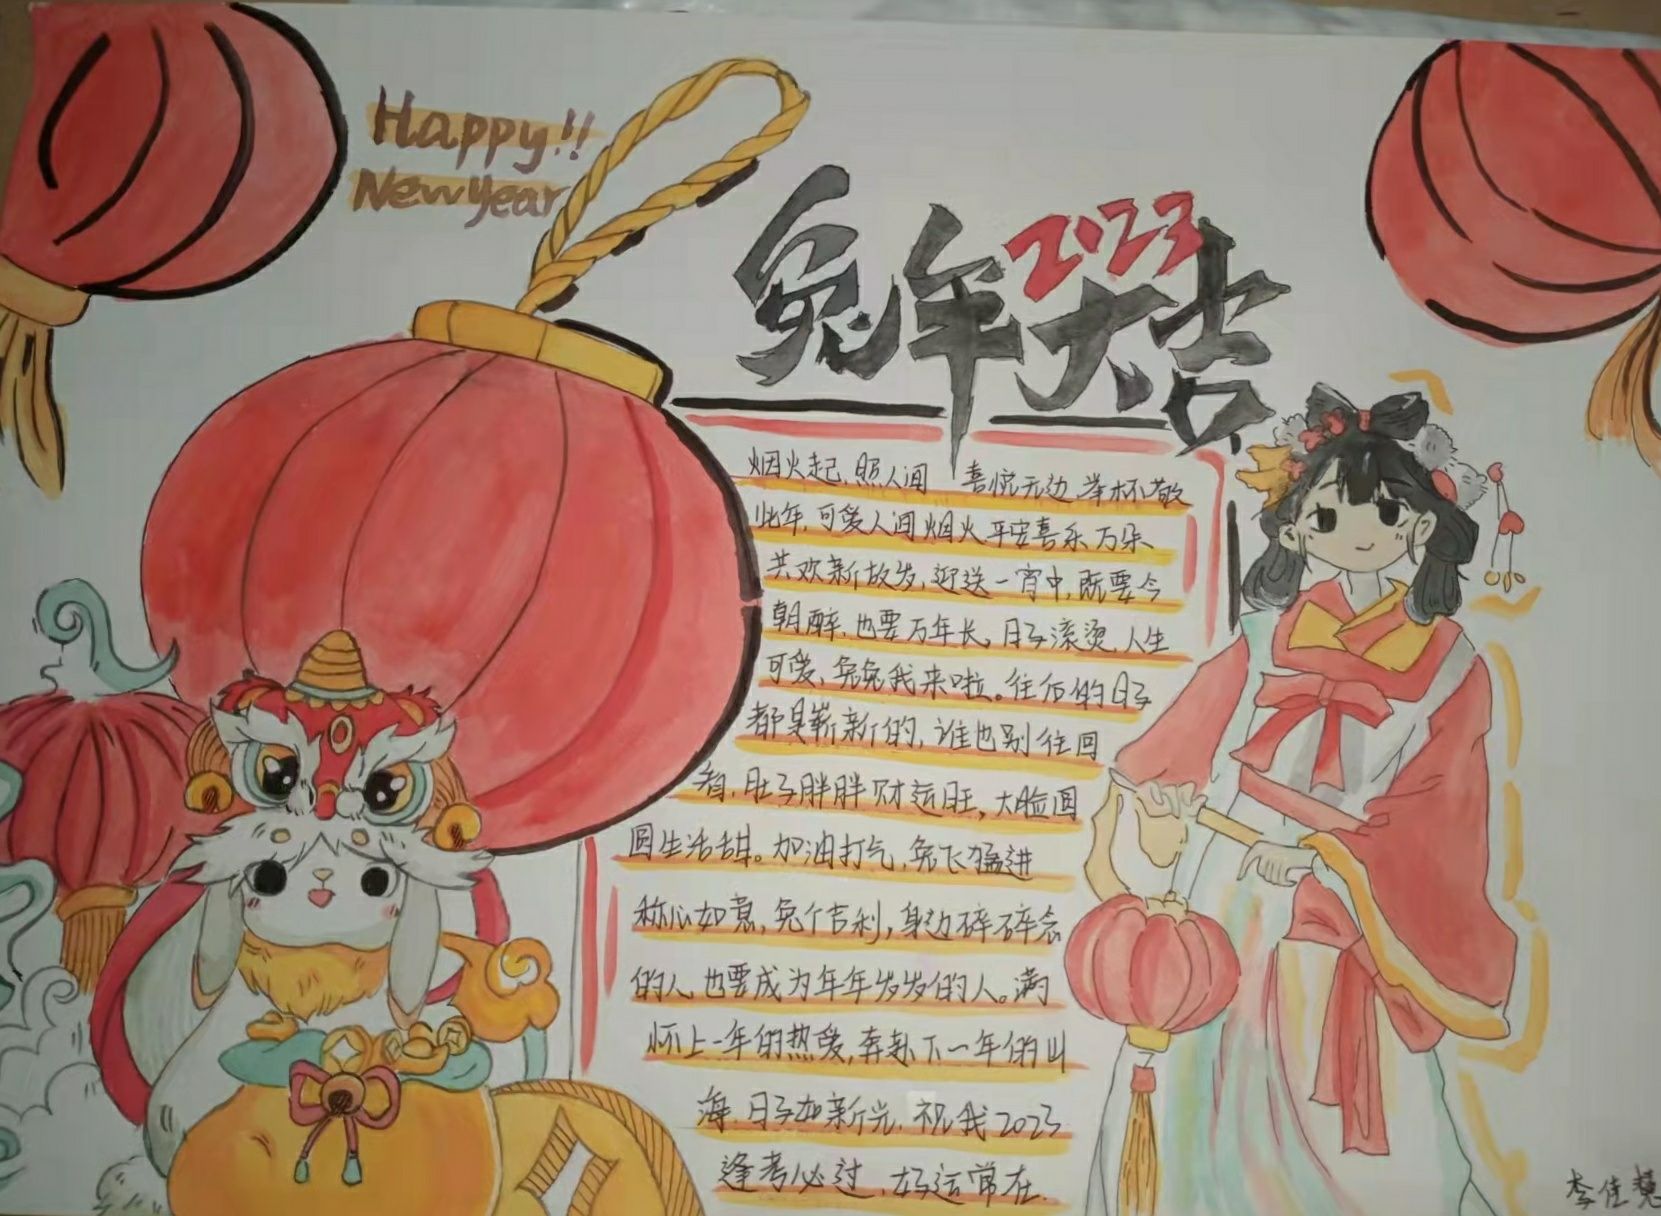 Happy!!
New year
2023
兔年大吉
烟火起,照人间 喜悦无边,举杯敬
此年,可爱人间烟火平安喜乐万朵
共欢新故岁,迎送一宵中,既要今
朝醉,也要万年长。日子滚烫,人生
可爱,兔兔我来啦。往后的日子
都是崭新的,谁也别往回
看,肚子胖胖财运旺,大脸圆
圆生活甜。加油打气,兔飞猛进
称心如意,兔个吉利,身边碎碎念
的人也要成为年年岁岁的人。满
怀上一年的热爱,奔赴下一年的山
海,日子如新光,祝我2023
逢考必过,好运常在.
李佳慧